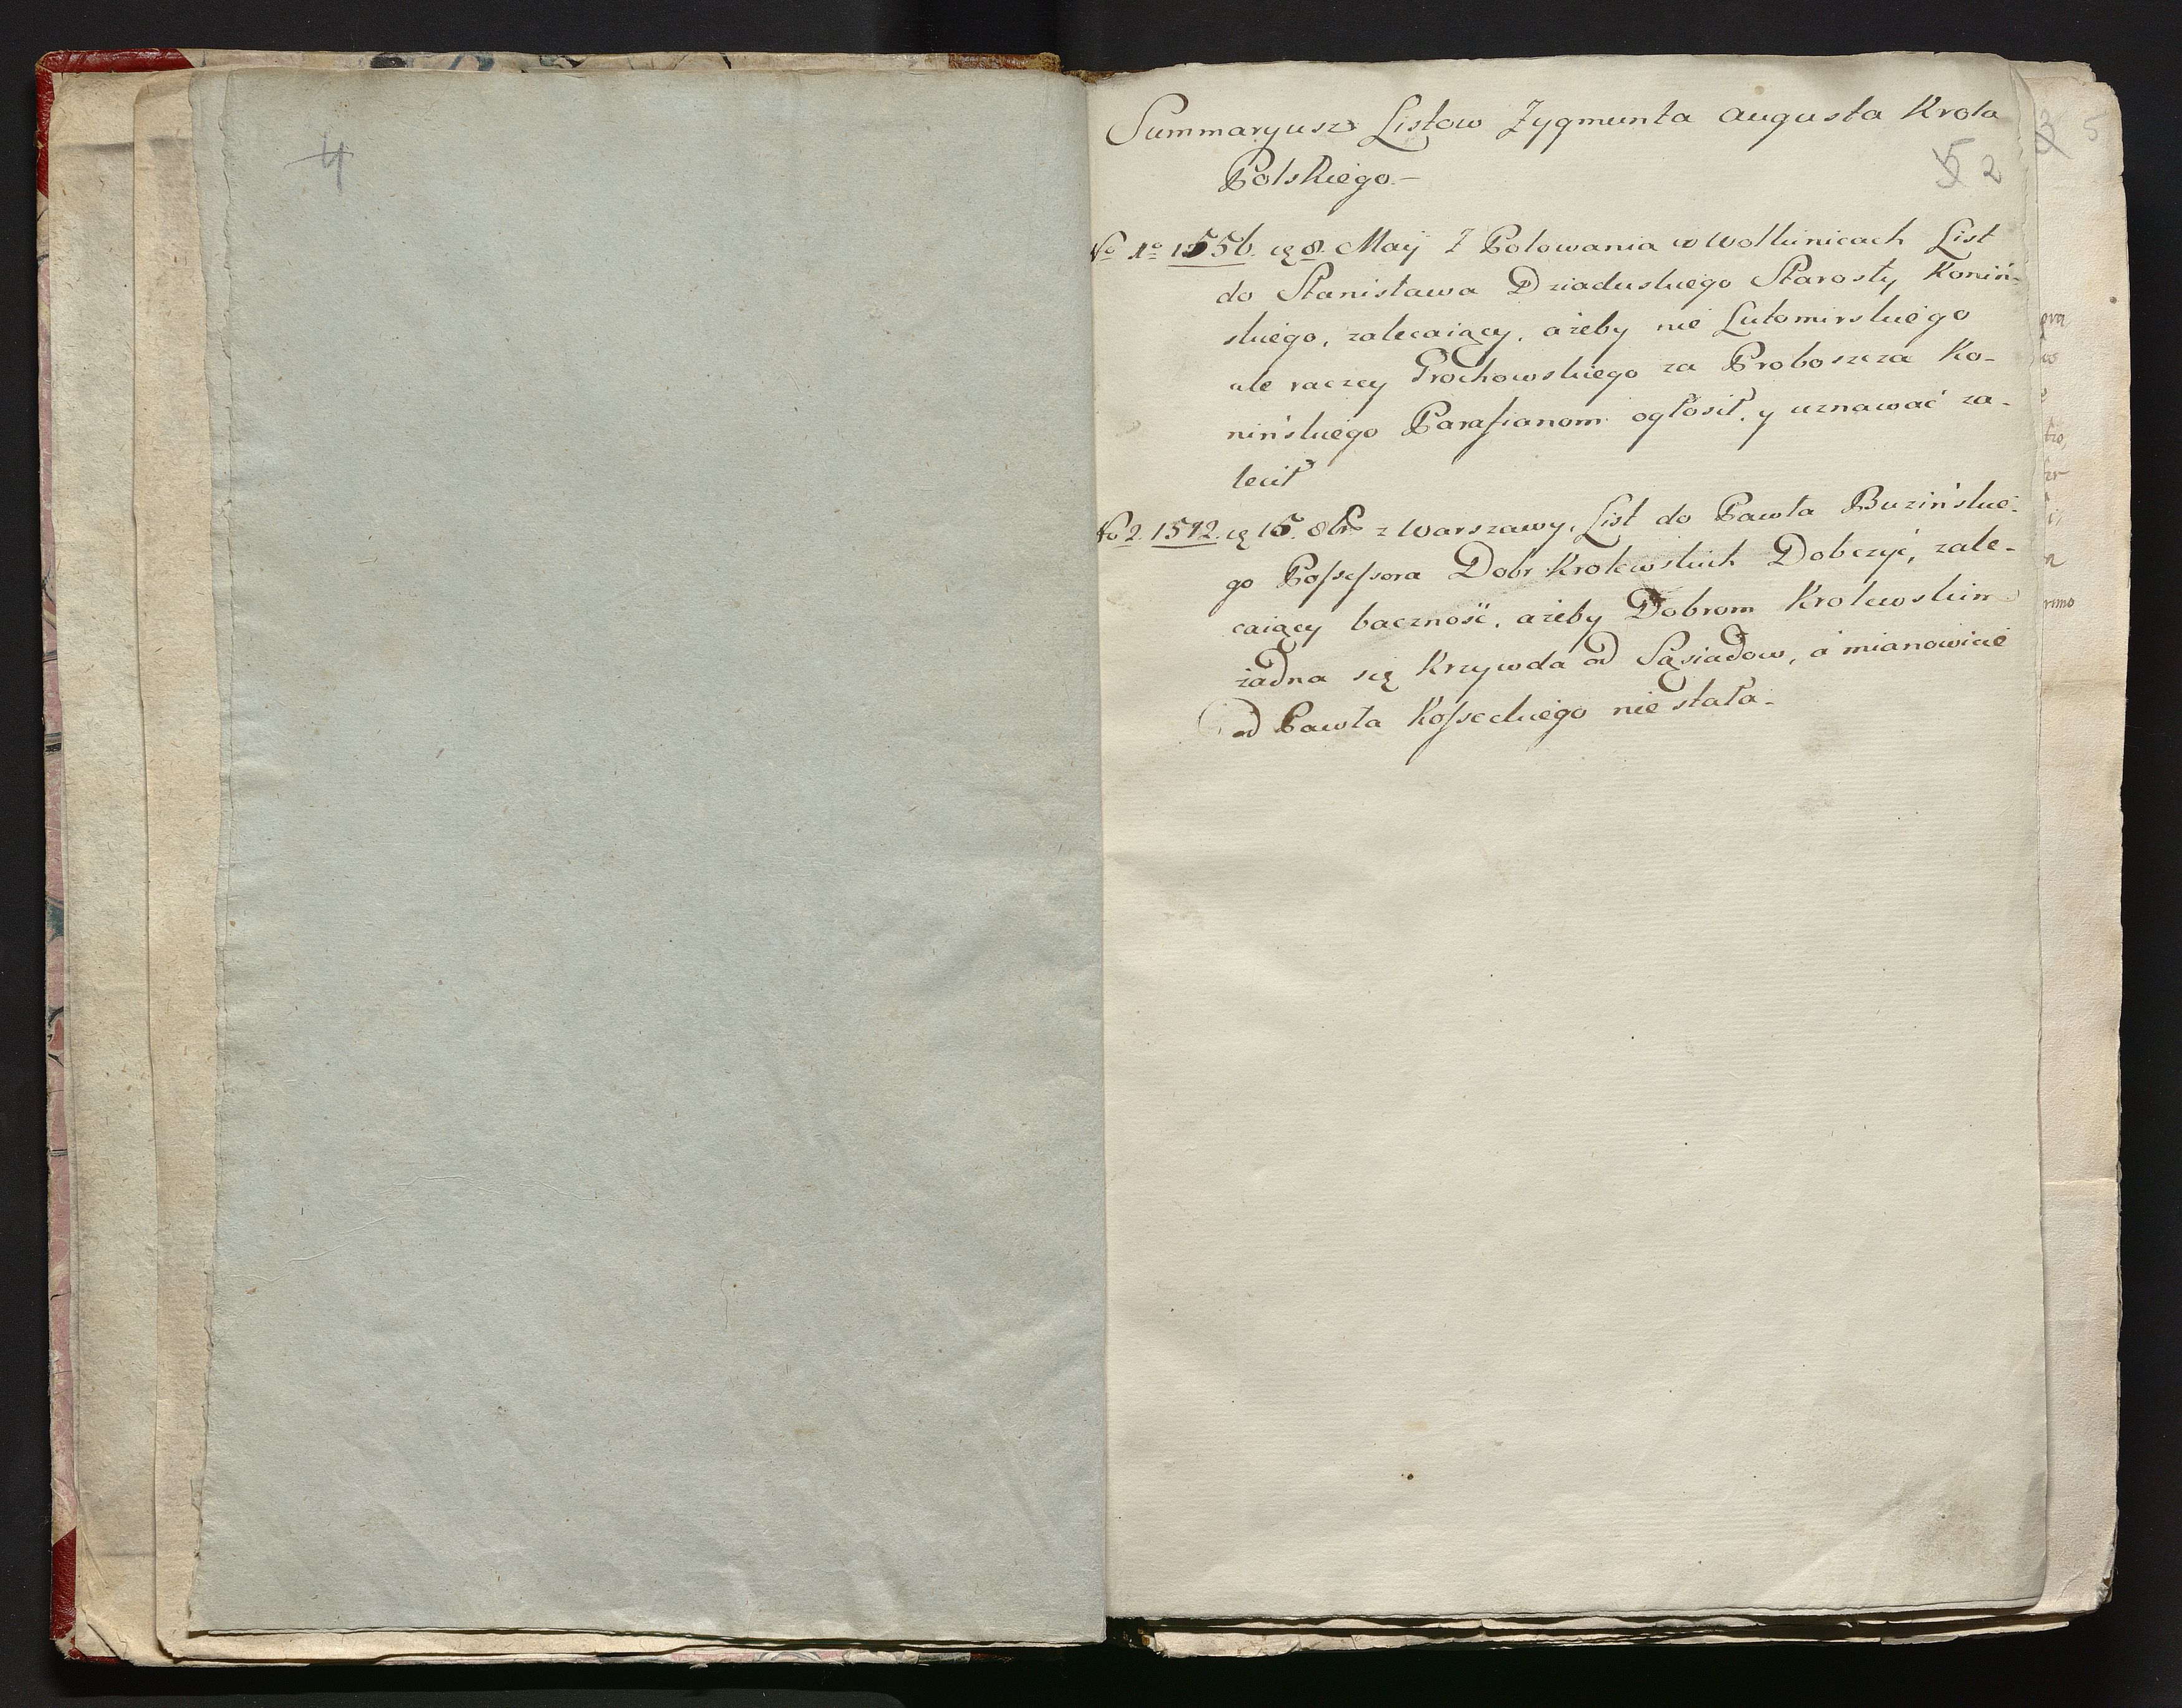 4
Summaryusz Listow Zygmunta Augusta Krola
5 2
Polskiego.—
No 1o 1556. 8. Maij Z Polowania w Wolkinicach List
do Stanisława Dziaduskiego Starosty Koniń-
skiego, zalecaiący, ażeby nie Lutomirskiego
ale raczey Grochowskiego za Proboszcza Ko-
nińskiego Parafianom ogłosił, y uznawać za-
lecił
No 2. 1572. 15. 8br z Warszawy, List do Pawła Buzińskie-
go Possessora Dobr Krolewskich Dobczyć, zale-
caiący baczność, ażeby Dobrom Krolewskim
żadna się Krzywda od Sąsiadow, a mianowicie
od Pawła Kosseckiego nie stała.
3 5